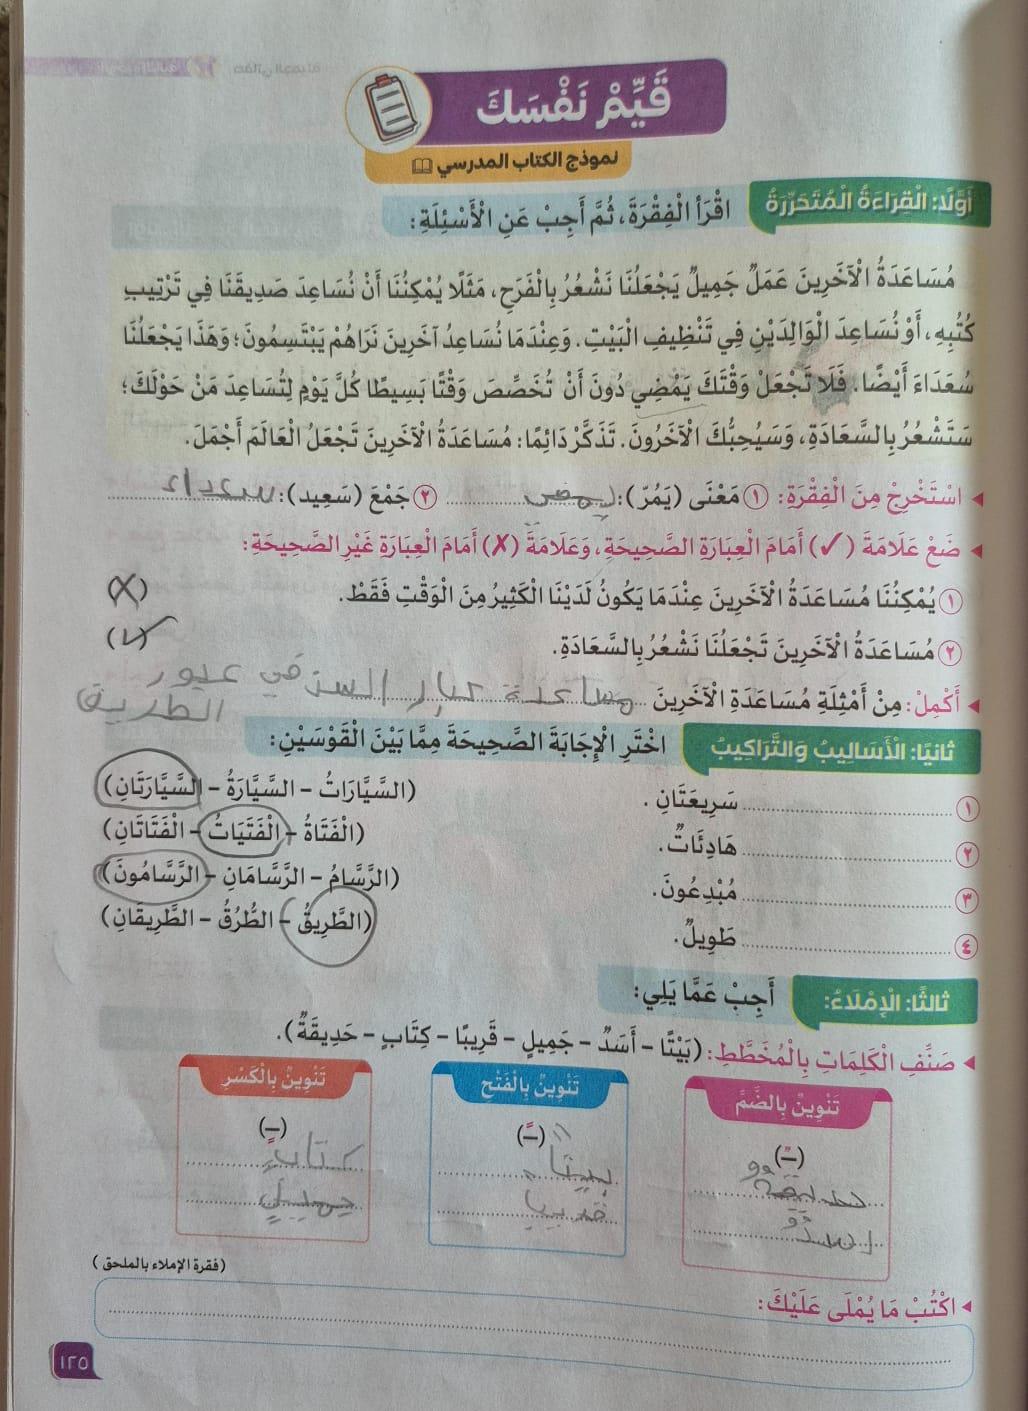 قَيِّمْ نَفْسَكَ
نموذج الكتاب المدرسي
أَوَّلًا: الْقِرَاءَةُ الْمُتَحَرِّرَةُ اقْرَأِ الْفِقْرَةَ، ثُمَّ أَجِبْ عَنِ الْأَسْئِلَةِ:
مُسَاعَدَةُ الْآخَرِينَ عَمَلٌ جَمِيلٌ يَجْعَلُنَا نَشْعُرُ بِالْفَرَحِ، مَثَلًا يُمْكِنُنَا أَنْ نُسَاعِدَ صَدِيقَنَا فِي تَرْتِيبِ
كُتُبِهِ، أَوْ نُسَاعِدَ الْوَالِدَيْنِ فِي تَنْظِيفِ الْبَيْتِ. وَعِنْدَمَا نُسَاعِدُ آخَرِينَ نَرَاهُمْ يَبْتَسِمُونَ؛ وَهَذَا يَجْعَلُنَا
سُعَدَاءَ أَيْضًا. فَلَا تَجْعَلْ وَقْتَكَ يَمْضِي دُونَ أَنْ تُخَصِّصَ وَقْتًا بَسِيطًا كُلَّ يَوْمٍ لِتُسَاعِدَ مَنْ حَوْلَكَ؛
سَتَشْعُرُ بِالسَّعَادَةِ، وَسَيُحِبُّكَ الْآخَرُونَ. تَذَكَّرْ دَائِمًا: مُسَاعَدَةُ الْآخَرِينَ تَجْعَلُ الْعَالَمَ أَجْمَلَ.
اسْتَخْرِجْ مِنَ الْفِقْرَةِ: ١ مَعْنَى (يَمُرّ): يمضى ٢ جَمْعَ (سَعِيد): سعداء
ضَعْ عَلَامَةَ (✓) أَمَامَ الْعِبَارَةِ الصَّحِيحَةِ، وَعَلَامَةَ (✗) أَمَامَ الْعِبَارَةِ غَيْرِ الصَّحِيحَةِ:
١ يُمْكِنُنَا مُسَاعَدَةُ الْآخَرِينَ عِنْدَمَا يَكُونُ لَدَيْنَا الْكَثِيرُ مِنَ الْوَقْتِ فَقَطْ. (✗)
٢ مُسَاعَدَةُ الْآخَرِينَ تَجْعَلُنَا نَشْعُرُ بِالسَّعَادَةِ. (✓)
أَكْمِلْ: مِنْ أَمْثِلَةِ مُسَاعَدَةِ الْآخَرِينَ مساعدة كبار السن في عبور
الطريق
ثانيًا: الْأَسَالِيبُ وَالتَّرَاكِيبُ اخْتَرِ الْإِجَابَةَ الصَّحِيحَةَ مِمَّا بَيْنَ الْقَوْسَيْنِ:
١ سَرِيعَتَانِ. (السَّيَّارَاتُ – السَّيَّارَةُ – السَّيَّارَتَانِ)
٢ هَادِئَاتٌ. (الْفَتَاةُ – الْفَتَيَاتُ – الْفَتَاتَانِ)
٣ مُبْدِعُونَ. (الرَّسَّامُ – الرَّسَّامَانِ – الرَّسَّامُونَ)
٤ طَوِيلٌ. (الطَّرِيقُ – الطُّرُقُ – الطَّرِيقَانِ)
ثالثًا: الْإِمْلَاءُ: أَجِبْ عَمَّا يَلِي:
صَنِّفِ الْكَلِمَاتِ بِالْمُخَطَّطِ: (بَيْتًا – أَسَدٌ – جَمِيلٍ – قَرِيبًا – كِتَابٍ – حَدِيقَةٌ).
تَنْوِينٌ بِالضَّمِّ تَنْوِينٌ بِالْفَتْحِ تَنْوِينٌ بِالْكَسْرِ
(ـٌ) (ـً) (ـٍ)
حديقةٌ بيتاً كتابٍ
اسدٌ قريباً جميلٍ
(فقرة الإملاء بالملحق)
اكْتُبْ مَا يُمْلَى عَلَيْكَ:
١٢٥